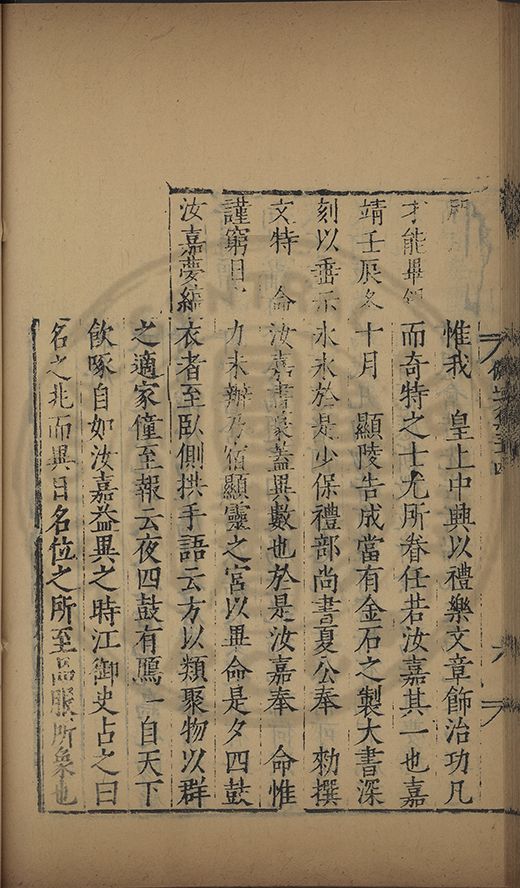 惟我 皇上中興以禮樂文章飾治功凡
才能畢 而奇特之士尤所眷任若汝嘉其一也嘉
靖壬辰冬十月 顯陵告成當有金石之製大書深
刻以垂示永永於是少保禮部尚書夏公奉 勑撰
文特 命汝嘉書篆蓋異數也於是汝嘉奉 命惟
謹窮日 力未辦乃宿顯靈之宮以畢命是夕四鼓
汝嘉夢絳衣者至臥側拱手語云方以類聚物以群
之適家僮至報云夜四鼓有鴈一自天下
飲啄自如汝嘉益異之時江御史占之曰
名之兆而異日名位之所至品服所象也
六